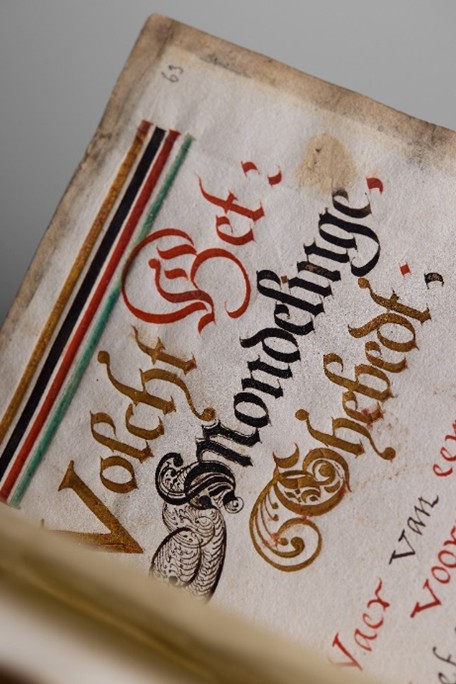 63
Volcht Het:
Mondelinge,
Ghebedt.,
Vaer van een
voor